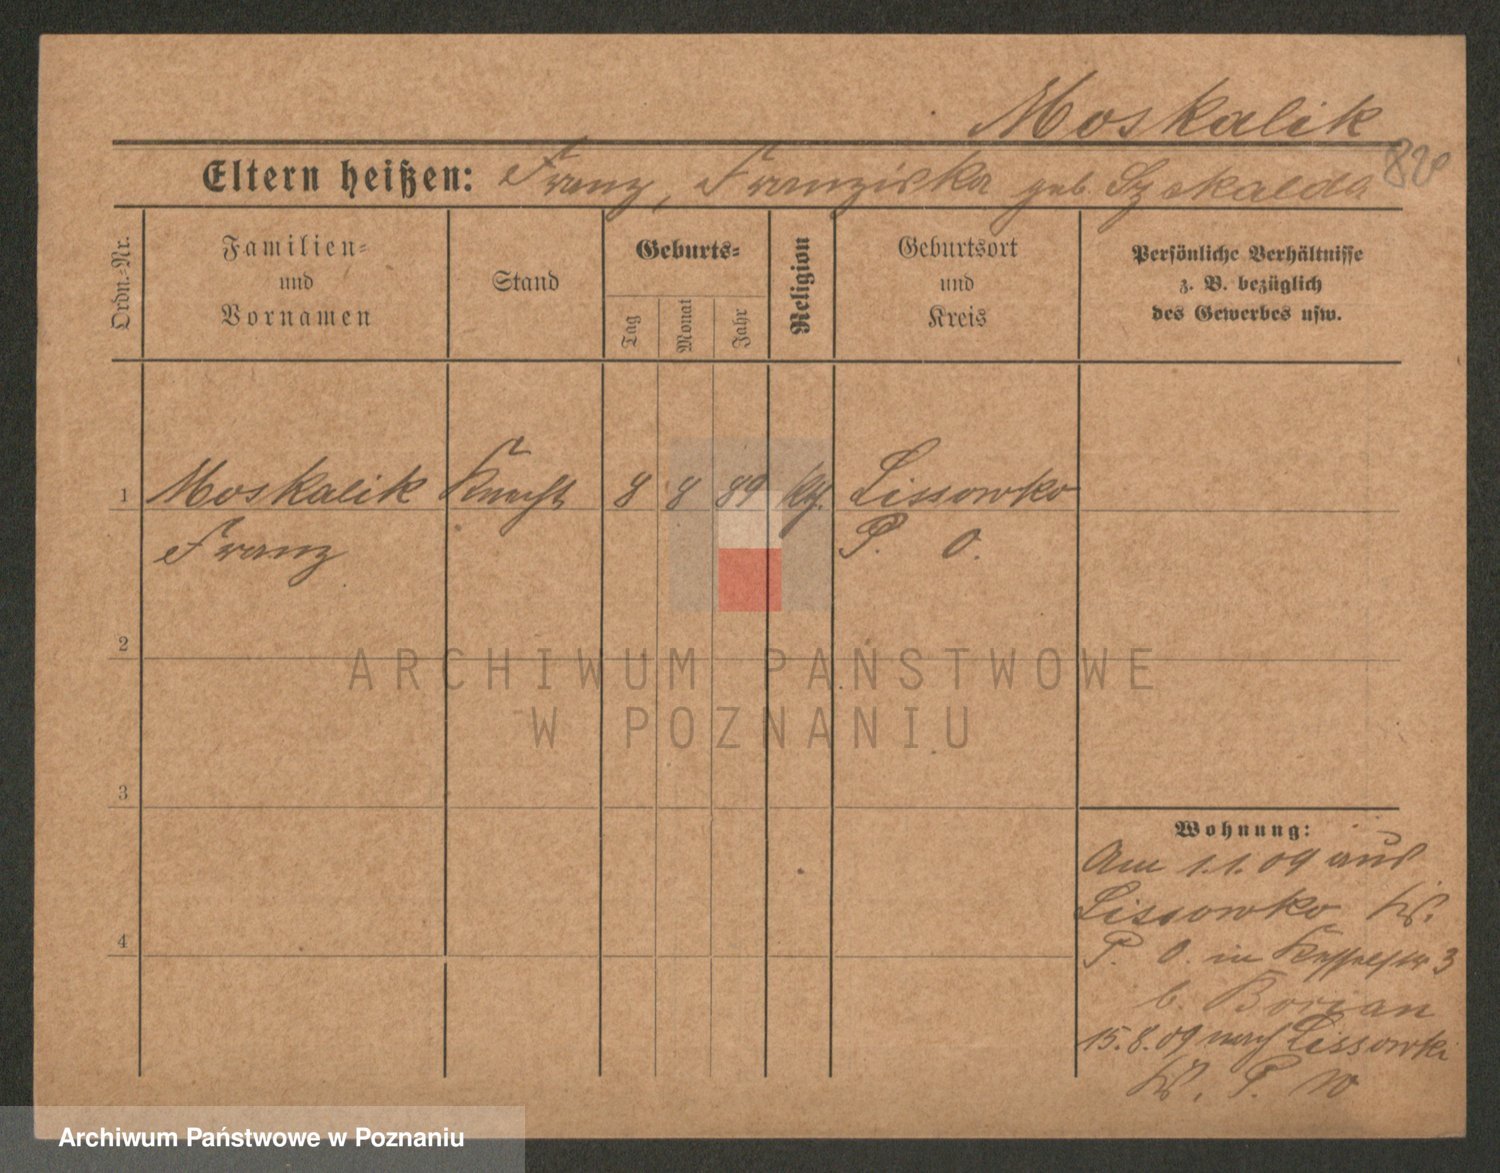 Moskalik
820
Eltern heißen: Franz, Franziska geb. Szekalda
Ordn.=Nr.
Familien=
und
Vornamen
Stand
Geburts=
Tag
Monat
Jahr
Religion
Geburtsort
und
Kreis
Persönliche Verhältnisse
z. B. bezüglich
des Gewerbes usw.
1 Moskalik Knecht 8 8 89 kth. Lissowko
Franz P. O.
2
ARCHIWUM PAŃSTWOWE
W POZNANIU
3
Wohnung:
Am 1.1.09 aus
Lissowko Kr.
4
P. O. in Kesselstr 3
b. Borian
15.8.09 nach Lissowki
Kr. P. W
Archiwum Państwowe w Poznaniu